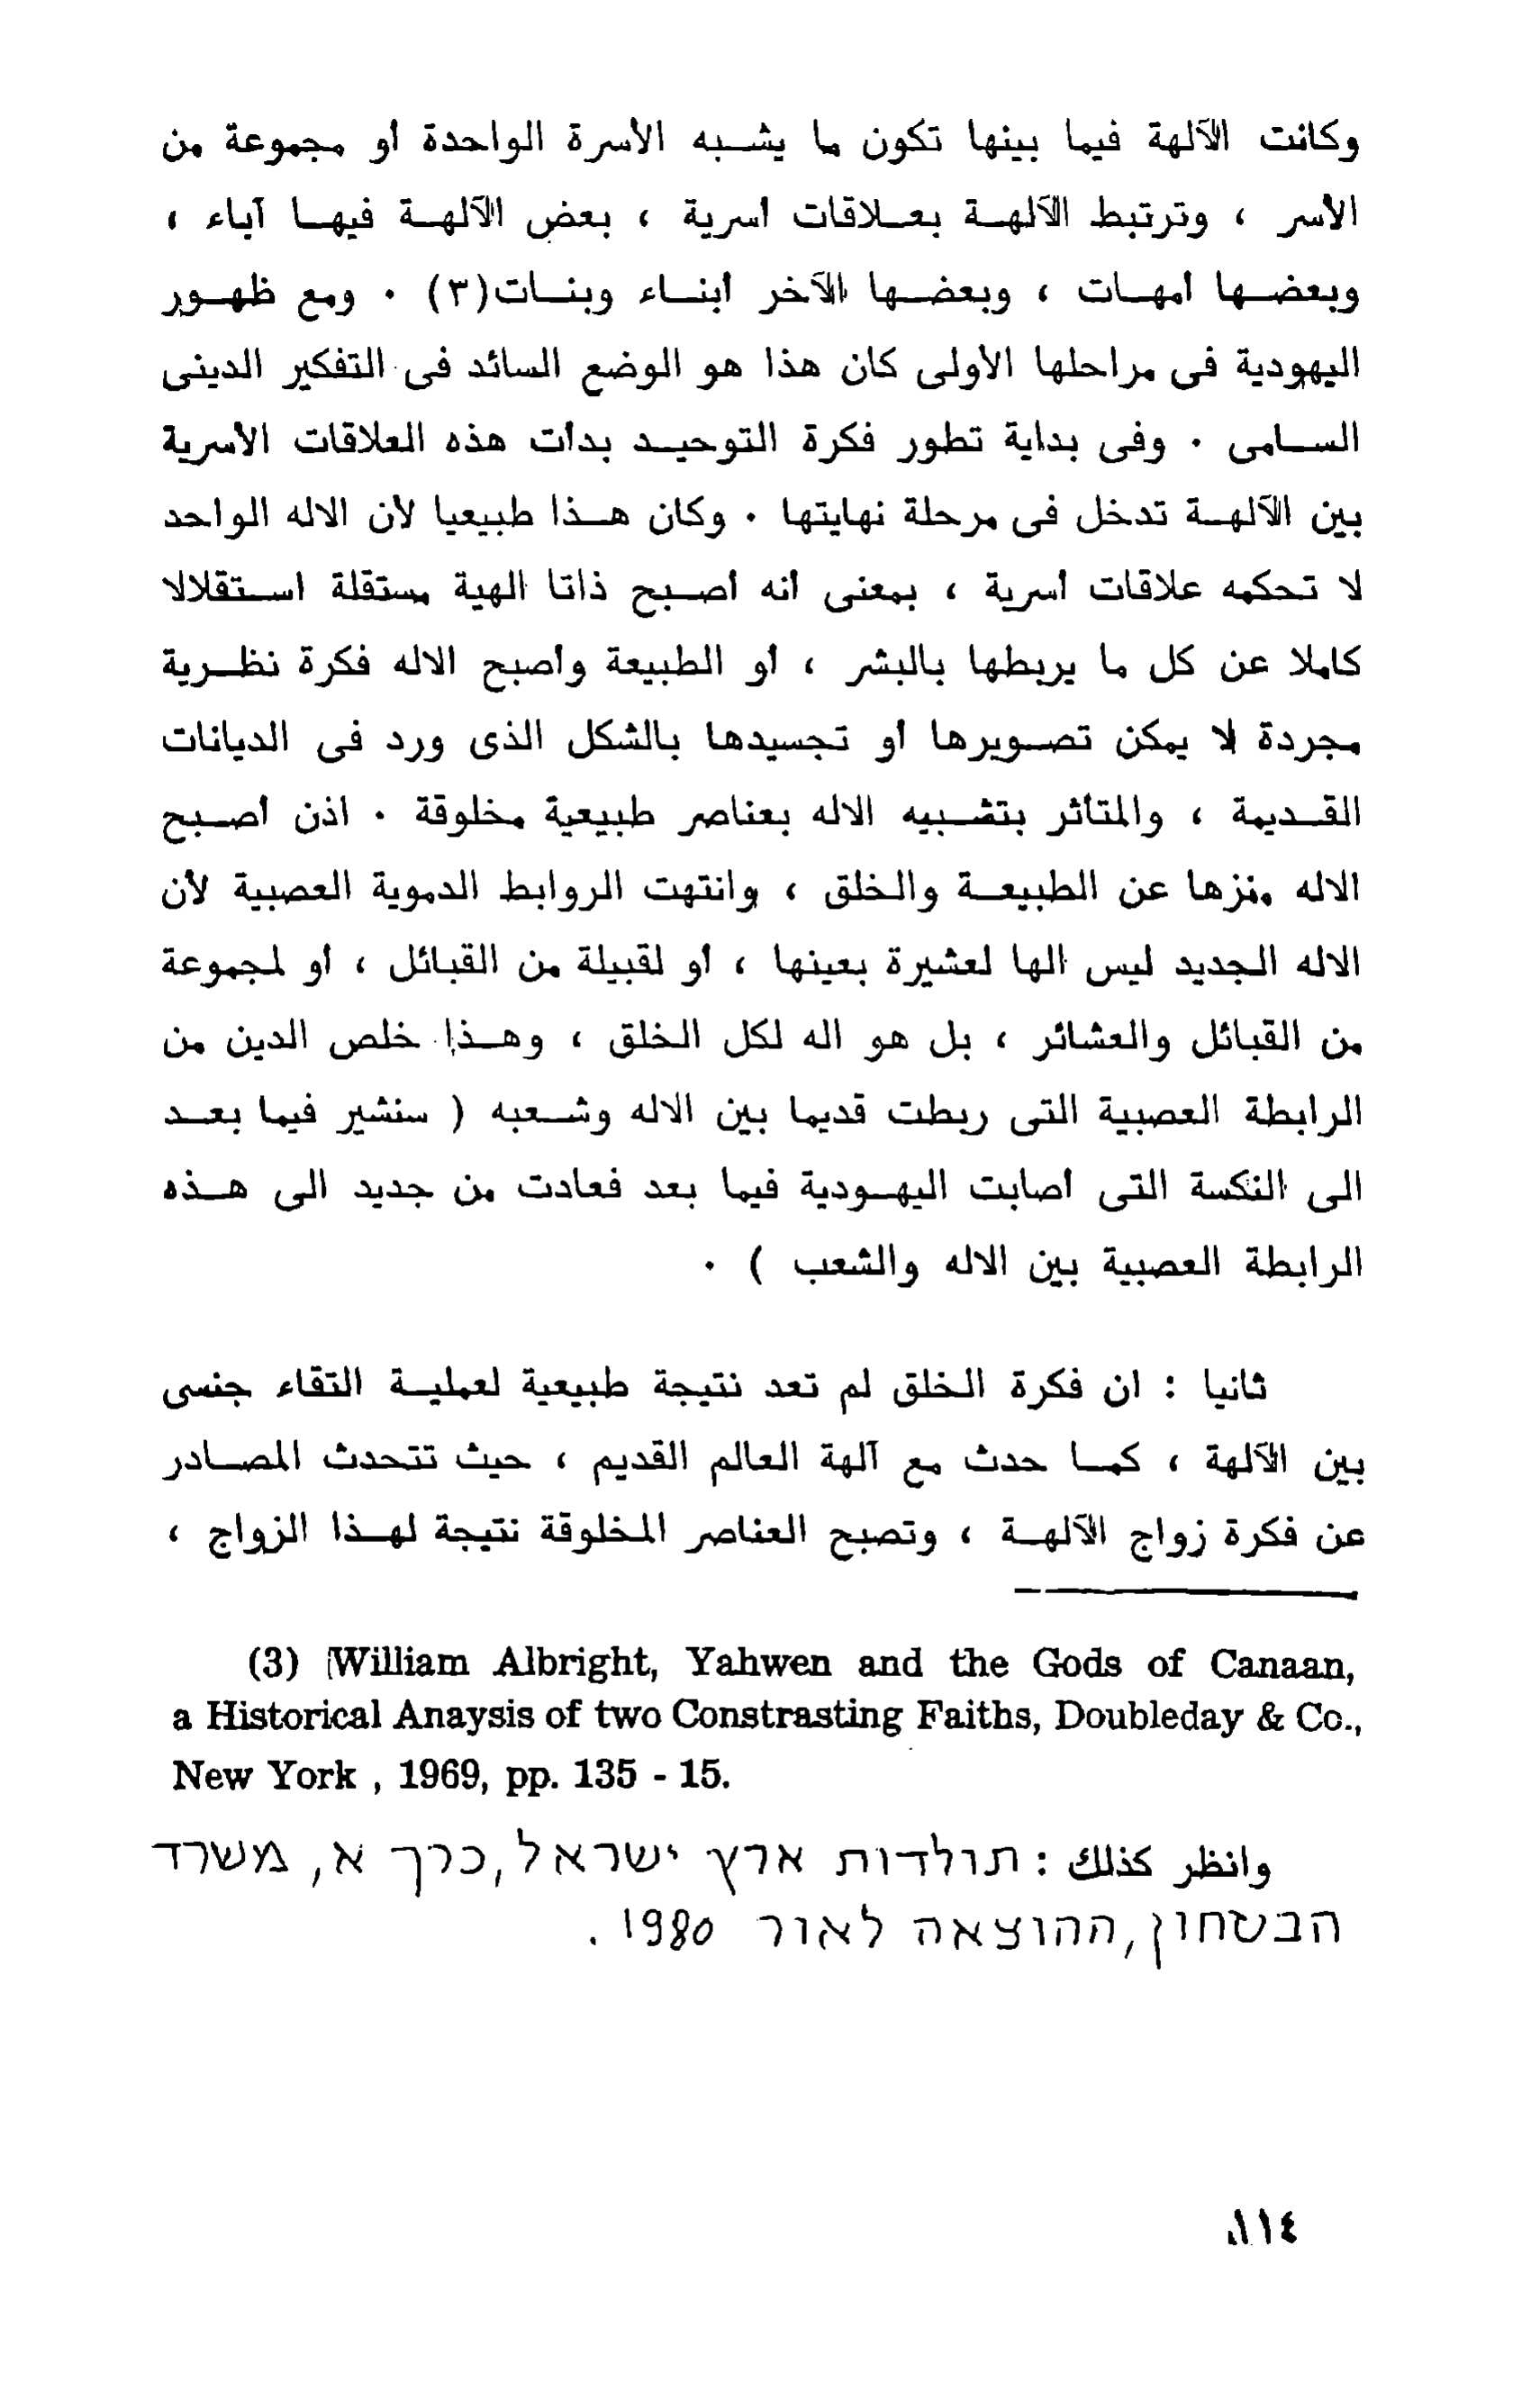 وكانت الآلهة فيما بينها تكون ما يشبه الأسرة الواحدة أو مجموعة من
الأسر ، وترتبط الآلهة بعلاقات أسرية ، بعض الآلهة فيها آباء ،
وبعضها أمهات ، وبعضها الآخر أبناء وبنات(٣) ٠ ومع ظهور
اليهودية فى مراحلها الأولى كان هذا هو الوضع السائد فى التفكير الدينى
السامى ٠ وفى بداية تطور فكرة التوحيد بدأت هذه العلاقات الأسرية
بين الآلهة تدخل فى مرحلة نهايتها ٠ وكان هذا طبيعيا لأن الاله الواحد
لا تحكمه علاقات أسرية ، بمعنى أنه أصبح ذاتا الهية مستقلة استقلالا
كاملا عن كل ما يربطها بالبشر ، أو الطبيعة وأصبح الاله فكرة نظرية
مجردة لا يمكن تصويرها أو تجسيدها بالشكل الذى ورد فى الديانات
القديمة ، والمتأثر بتشبيه الاله بعناصر طبيعية مخلوقة ٠ اذن أصبح
الاله منزها عن الطبيعة والخلق ، وانتهت الروابط الدموية العصبية لأن
الاله الجديد ليس الها لعشيرة بعينها ، أو لقبيلة من القبائل ، أو لمجموعة
من القبائل والعشائر ، بل هو اله لكل الخلق ، وهذا خلص الدين من
الرابطة العصبية التى ربطت قديما بين الاله وشعبه ( سنشير فيما بعد
الى النكسة التى أصابت اليهودية فيما بعد فعادت من جديد الى هذه
الرابطة العصبية بين الاله والشعب ) ٠
ثانيا : ان فكرة الخلق لم تعد نتيجة طبيعية لعملية التقاء جنسى
بين الآلهة ، كما حدث مع آلهة العالم القديم ، حيث تتحدث المصادر
عن فكرة زواج الآلهة ، وتصبح العناصر المخلوقة نتيجة لهذا الزواج ،
(3) William Albright, Yahwen and the Gods of Canaan,
a Historical Anaysis of two Constrasting Faiths, Doubleday & Co.,
New York , 1969, pp. 135 - 15.
وانظر كذلك : תולדות ארץ ישראל, כרך א, משרד
הבטחון, ההוצאה לאור 1980 .
١١٤